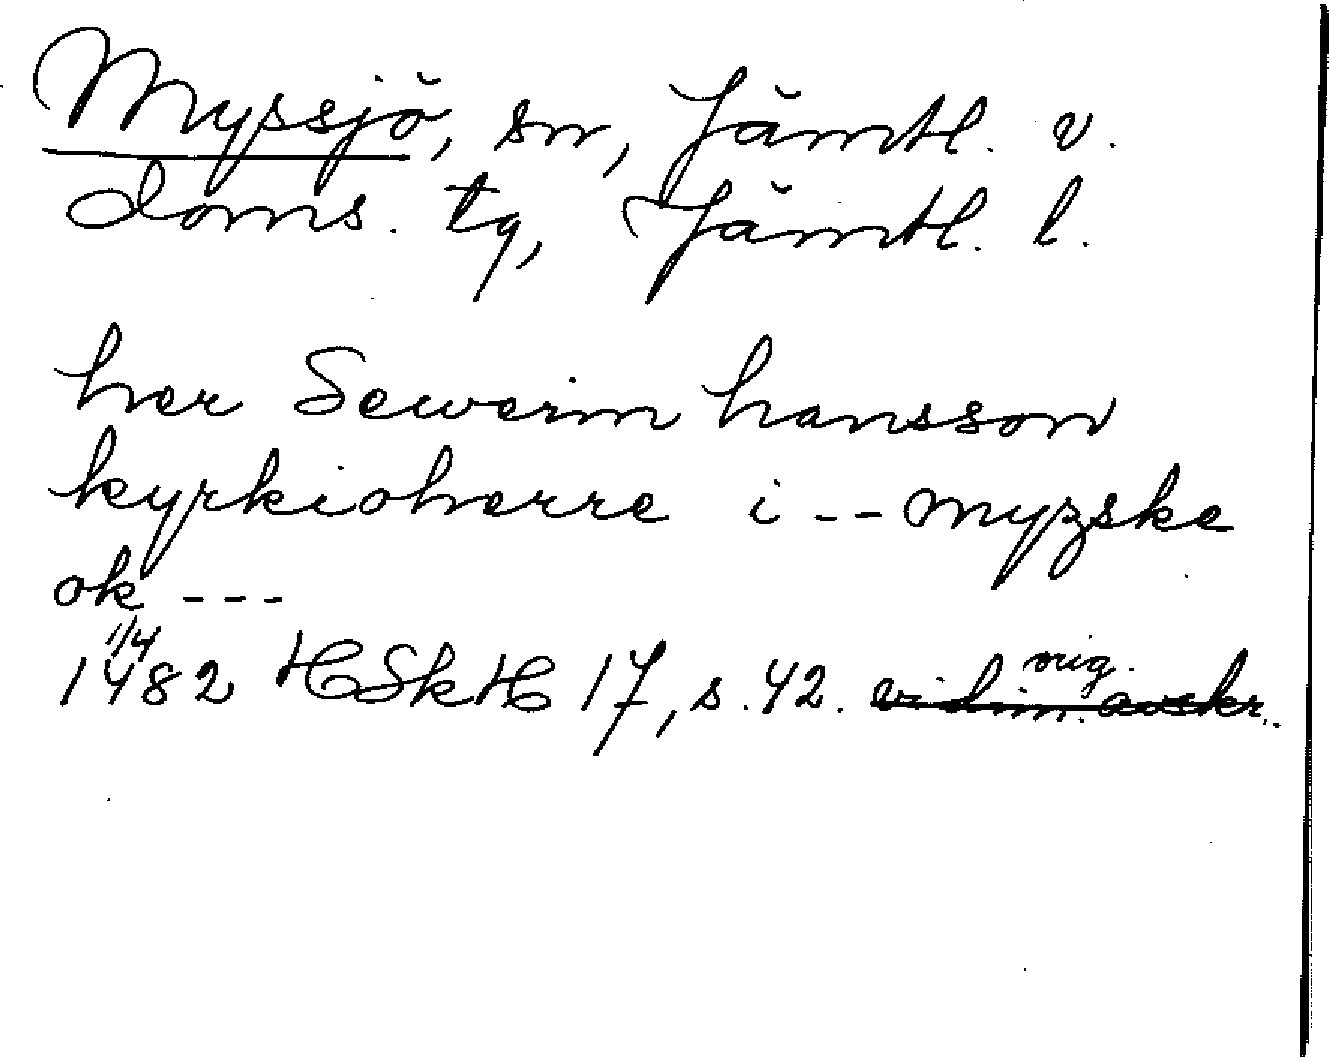 Myssjö, sn, Jämtl. v.
doms. tg, Jämtl. l.
her Sewerin hansson
kyrkioherre i -- myzske
ok ---
1/4
1482 HSkH 17, s. 42. orig.
vidim. avskr.